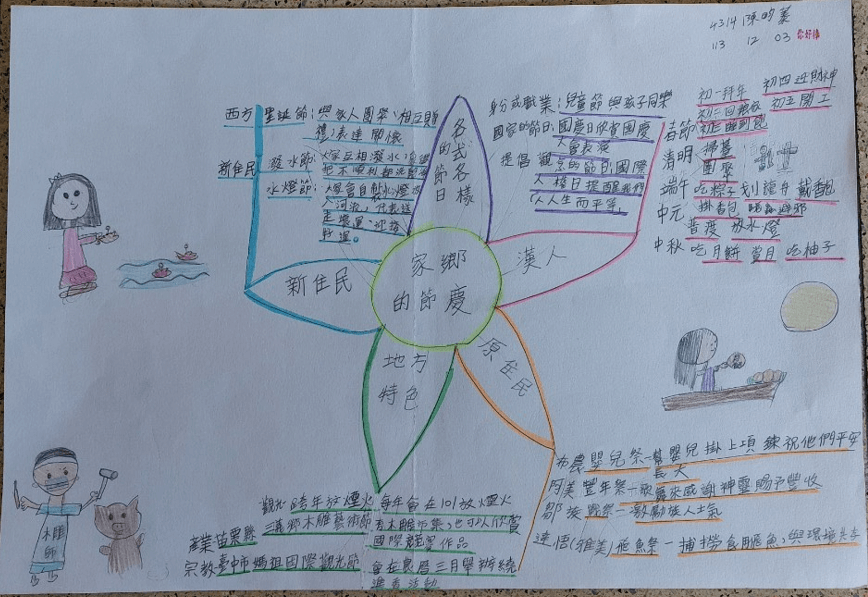 4314 陳
113 12 03
家鄉
的節慶
各式各樣
的節日
身份或職業:兒童節與孩子同樂
國家的節日:國慶日欣賞國慶
大會表演
提倡觀念的節日:國際
人權日提醒我們
人人生而平等。
漢人
春節
初一拜年 初四迎財神
初二回娘家 初五開工
初三睡到飽
清明 掃墓
團聚
端午 吃粽子 划龍舟 戴香包
中元 掛香包 避邪
普渡 放水燈
中秋 吃月餅 賞月 吃柚子
原住民
布農嬰兒祭-幫嬰兒掛上項鍊祝他們平安
長大
阿美豐年祭-歌舞來感謝神靈賜予豐收
鄒族戰祭-激勵族人士氣
達悟(雅美)飛魚祭-捕撈食用飛魚,與環境共存
地方
特色
觀光 跨年放煙火 每年會在101放煙火
產業 苗栗縣
三義鄉木雕藝術節 也可以欣賞
國際競賽作品
宗教 臺中市媽祖國際觀光節 會在農曆三月舉辦繞
進香活動
新住民
西方 聖誕節:與家人團聚、相互贈
禮,表達關懷
新住民 潑水節:大家互相潑水
水燈節:大家會自製水燈
入河流,代表送
走壞運、迎接
好運。
木雕
師